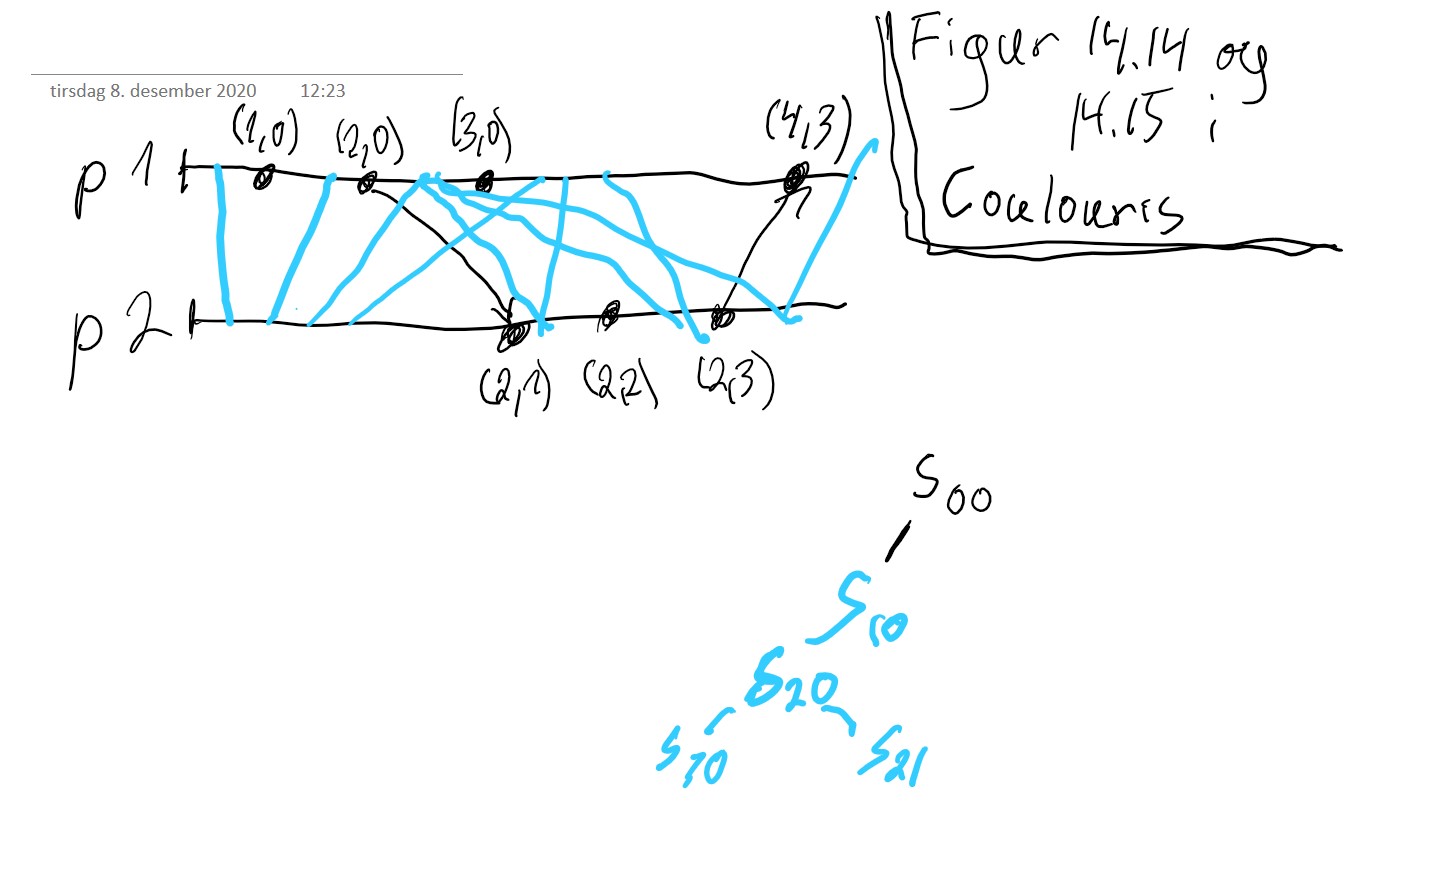 tirsdag 8. desember 2020 12:23
Figur 14.14 og
14.15 i
Coulouris
(1,0) (2,0) (3,0) (4,3)
p 1
p 2
(2,1) (2,2) (2,3)
S00
S10
S20
S30 S21